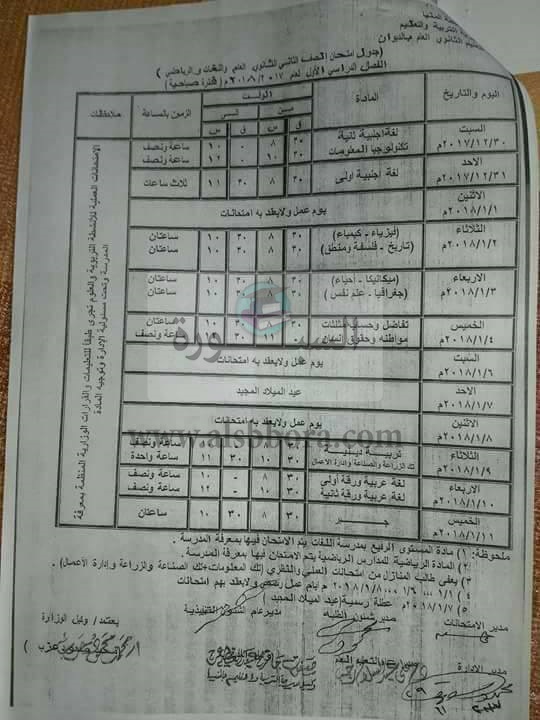 التربية والتعليم
الثانوي العام بالديوان
(جدول امتحان الصف الثاني الثانوي العام واللغات والرياضي)
الفصل الدراسي الأول لعام ٢٠١٧/٢٠١٨م ( فترة صباحية )
اليوم والتاريخ المادة الوقت الزمن بالساعة ملاحظات
من إلى
ق س ق س
السبت ٢٠١٧/١٢/٣٠م
لغة اجنبية ثانية ٣٠ ٨ ٠ ١٠ ساعة ونصف
تكنولوجيا المعلومات ٣٠ ١٠ ٠ ١٢ ساعة ونصف
الاحد ٢٠١٧/١٢/٣١م
لغة أجنبية اولى ٣٠ ٨ ٣٠ ١١ ثلاث ساعات
الاثنين ٢٠١٨/١/١م
يوم عمل ولايعقد به امتحانات
الثلاثاء ٢٠١٨/١/٢م
(فيزياء - كيمياء) ٣٠ ٨ ٣٠ ١٠ ساعتان
(تاريخ - فلسفة ومنطق) ٣٠ ٨ ٣٠ ١٠ ساعتان
الاربعاء ٢٠١٨/١/٣م
(ميكانيكا - أحياء) ٣٠ ٨ ٣٠ ١٠ ساعتان
(جغرافيا - علم نفس) ٣٠ ٨ ٣٠ ١٠ ساعتان
الخميس ٢٠١٨/١/٤م
تفاضل وحساب مثلثات ٣٠ ١٠ ساعتان
مواطنه وحقوق انسان ١١ ساعة ونصف
السبت ٢٠١٨/١/٦م
يوم عمل ولايعقد به امتحانات
الأحد ٢٠١٨/١/٧م
عيد الميلاد المجيد
الاثنين ٢٠١٨/١/٨م
يوم عمل ولايعقد به امتحانات
الثلاثاء ٢٠١٨/١/٩م
تربية دينية ٣٠ ٨ ١٠ ساعة ونصف
تك الزراعة والصناعة وإدارة الاعمال ٣٠ ١٠ ٣٠ ١١ ساعة واحدة
الاربعاء ٢٠١٨/١/١٠م
لغة عربية ورقة أولى ٣٠ ٨ - ١٠ ساعة ونصف
لغة عربية ورقة ثانية ٣٠ ١٠ - ١٢ ساعة ونصف
الخميس ٢٠١٨/١/١١م
جبر ٣٠ ٨ ٣٠ ١٠ ساعتان
الامتحانات العملية للأنشطة التربوية والعلوم تجرى طبقاً للتعليمات والقرارات الوزارية المنظمة بمعرفة
المدرسة وتحت مسئولية الإدارة وتوجيه المادة
السبورة
www.alsbbora.com
ملحوظة: ١) مادة المستوى الرفيع بمدرسة اللغات يتم الامتحان فيها بمعرفة المدرسة .
٢) المادة الرياضية للمدارس الرياضية يتم الامتحان فيها بمعرفة المدرسة .
٣) يعفى طلاب المنازل من امتحانات العملي والنظري (تك المعلومات+تك الصناعة والزراعة وإدارة الأعمال)
٤) ١/١ ، ١/٦ ، ٢٠١٨/١/٨م ايام عمل ولايعقد بهم امتحانات
٥) ٢٠١٨/١/٧م عطلة رسمية (عيد الميلاد المجيد)
مدير الامتحانات مدير شئون الطلبه مدير عام الشئون التنفيذية يعتمد / وكيل الوزارة
مدير الإدارة التعليم العام